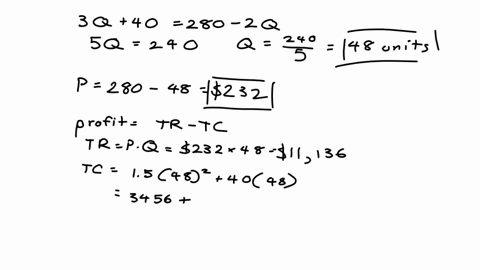 3Q + 40 = 280 - 2Q
5Q = 240 Q = 240/5 = 48 units
P = 280 - 48 = $232
profit = TR - TC
TR = P.Q = $232 × 48 = $11,136
TC = 1.5(48)² + 40(48)
= 3456 +